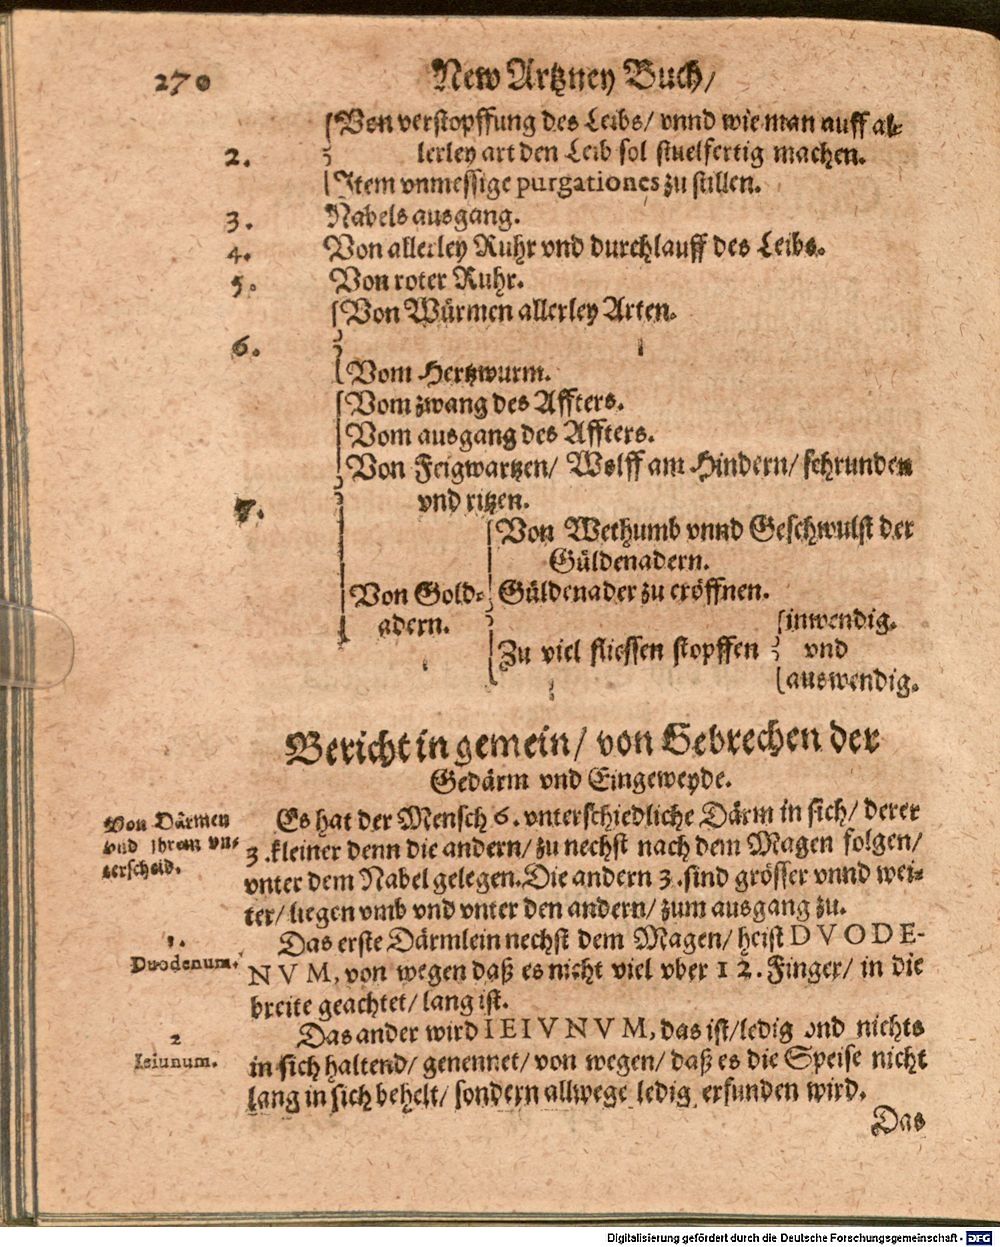 270 New Artzney Buch/
Von verstopffung des Leibs/ vnnd wie man auff al-
2. lerley art den Leib sol stuelfertig machen.
Item vnmessige purgationes zu stillen.
3. Nabels ausgang.
4. Von allerley Ruhr vnd durchlauff des Leibs.
5. Von roter Ruhr.
Von Würmen allerley Arten.
6.
Vom Hertzwurm.
Vom zwang des Affters.
Vom ausgang des Affters.
Von Feigwartzen/ Wolff am Hindern/ schrunden
7. vnd ritzen.
Von Wethumb vnnd Geschwulst der
Güldenadern.
Von Gold- Güldenader zu eröffnen.
adern. inwendig.
Zu viel fliessen stopffen vnd
auswendig.
Bericht in gemein/ von Gebrechen der
Gedärm vnd Eingeweyde.
Von Därmen
vnd ihrem vn-
terscheid.
Es hat der Mensch 6. vnterschiedliche Därm in sich/ derer
3. kleiner denn die andern/ zu nechst nach dem Magen folgen/
vnter dem Nabel gelegen. Die andern 3. sind grösser vnnd wei-
ter/ liegen vmb vnd vnter den andern/ zum ausgang zu.
1.
Duodenum.
Das erste Därmlein nechst dem Magen/ heist DVODE-
NVM, von wegen daß es nicht viel vber 12. Finger/ in die
breite geachtet/ lang ist.
2
Ieiunum.
Das ander wird IEIVNVM, das ist/ ledig vnd nichts
in sich haltend/ genennet/ von wegen/ daß es die Speise nicht
lang in sich behelt/ sondern allwege ledig erfunden wird.
Das
Digitalisierung gefördert durch die Deutsche Forschungsgemeinschaft - DFG